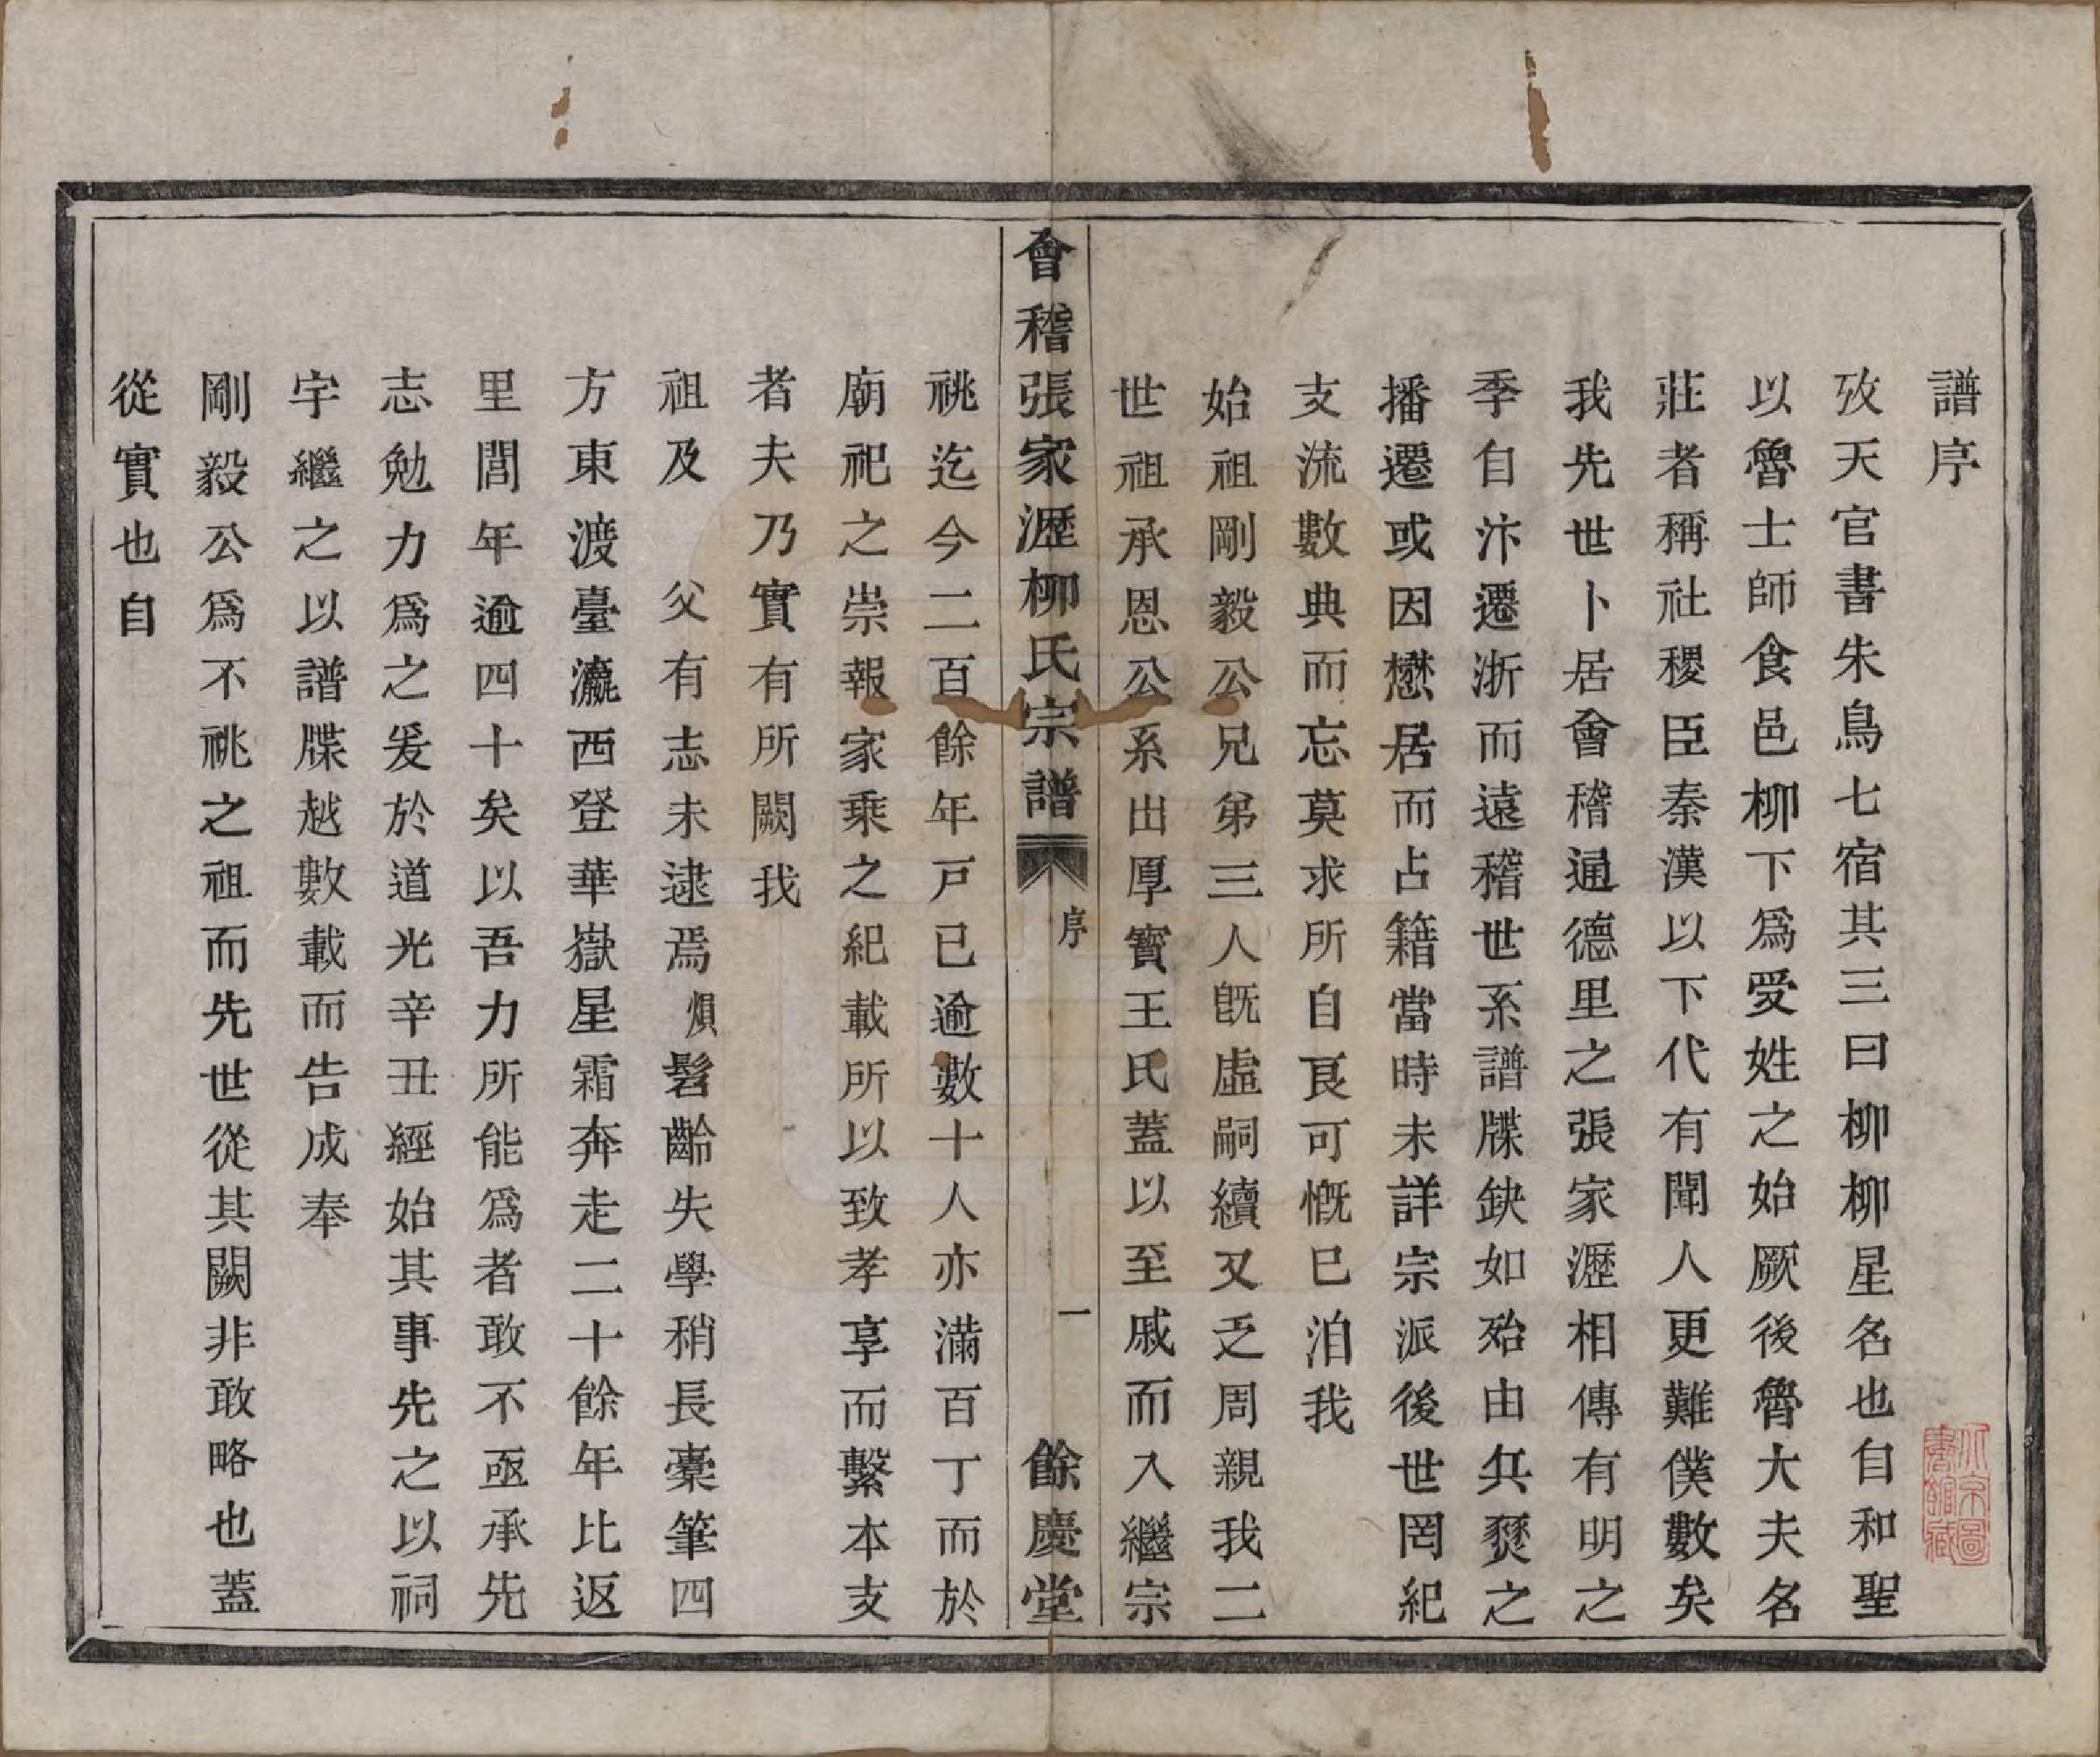 譜序
攷天官書朱鳥七宿其三曰柳柳星名也自和聖
以魯士師食邑柳下為受姓之始厥後魯大夫名
莊者稱社稷臣秦漢以下代有聞人更難僕數矣
我先世卜居會稽通德里之張家瀝相傳有明之
季自汴遷浙而遠稽世系譜牒缺如殆由兵燹之
播遷或因懋居而占籍當時未詳宗派後世罔紀
支流數典而忘莫求所自良可慨已洎我
始祖剛毅公兄弟三人旣虛嗣續又乏周親我二
世祖承恩公系出厚寳王氏蓋以至戚而入繼宗
會稽張家瀝柳氏宗譜
序
一
餘慶堂
祧迄今二百餘年戸已逾數十人亦滿百丁而於
廟祀之崇報家乗之紀載所以致孝享而繫本支
者夫乃實有所闕我
祖及 父有志未逮焉煩髫齡失學稍長橐筆四
方東渡臺瀛西登華嶽星霜奔走二十餘年比返
里閭年逾四十矣以吾力所能爲者敢不亟承先
志勉力爲之爰於道光辛丑經始其事先之以祠
宇繼之以譜牒越數載而告成奉
剛毅公爲不祧之祖而先世從其闕非敢略也蓋
從實也自